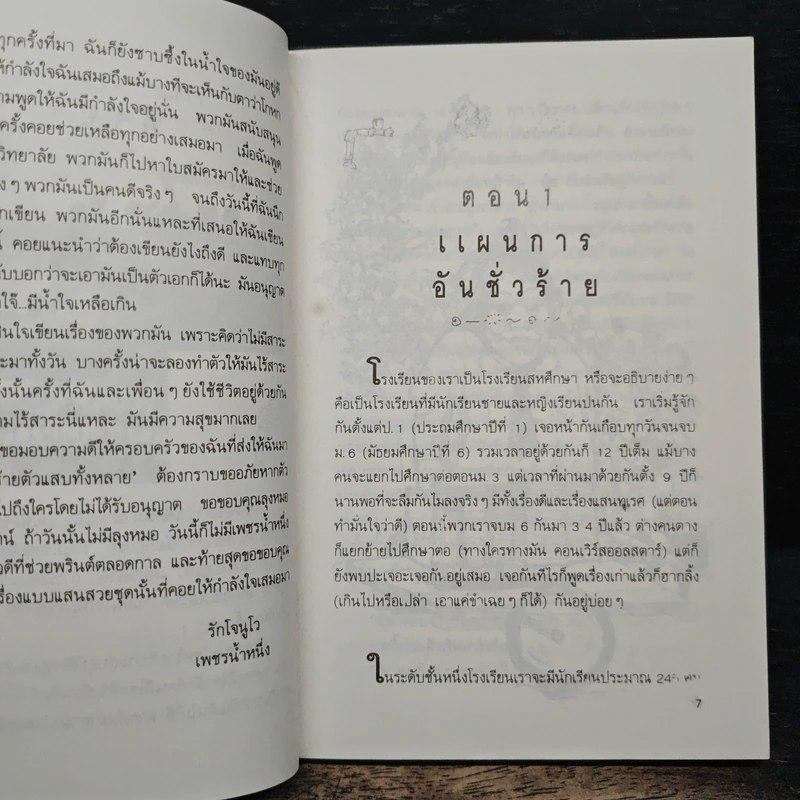 ทุกครั้งที่มา ฉันก็ยังซาบซึ้งในน้ำใจของมันอยู่ดี
ห้กำลังใจฉันเสมอถึงแม้บางทีจะเห็นกับตาว่าโกหก
ามพูดให้ฉันมีกำลังใจอยู่นั่น พวกมันสนับสนุน
ครั้งคอยช่วยเหลือทุกอย่างเสมอมา เมื่อฉันพูด
วิทยาลัย พวกมันก็ไปหาใบสมัครมาให้และช่วย
ง ๆ พวกมันเป็นคนดีจริง ๆ จนถึงวันนี้ที่ฉันนึก
กเขียน พวกมันอีกนั่นแหละที่เสนอให้ฉันเขียน
นี้ คอยแนะนำว่าต้องเขียนยังไงถึงดี และแทบทุก
กับบอกว่าจะเอามันเป็นตัวเอกก็ได้นะ มันอนุญาต
...มีน้ำใจเหลือเกิน
สินใจเขียนเรื่องของพวกมัน เพราะคิดว่าไม่มีสาระ
ะมาทั้งวัน บางครั้งน่าจะลองทำตัวให้มันไร้สาระ
งนั้นครั้งที่ฉันและเพื่อน ๆ ยังใช้ชีวิตอยู่ด้วยกัน
ามไร้สาระนี่แหละ มันมีความสุขมากเลย
ขอมอบความดีให้ครอบครัวของฉันที่ส่งให้ฉันมา
ร้ายตัวแสบทั้งหลาย' ต้องกราบขออภัยหากตัว
ไปถึงใครโดยไม่ได้รับอนุญาต ขอขอบคุณลุงหมอ
น์ ถ้าวันนั้นไม่มีลุงหมอ วันนี้ก็ไม่มีเพชรน้ำหนึ่ง
วดีที่ช่วยพรินต์ตลอดกาล และท้ายสุดขอขอบคุณ
รื่องแบบแสนสวยชุดนั้นที่คอยให้กำลังใจเสมอมา
รักโจนูโว
เพชรน้ำหนึ่ง
ตอน 1
แผนการ
อันชั่วร้าย
โรงเรียนของเราเป็นโรงเรียนสหศึกษา หรือจะอธิบายง่าย ๆ
คือเป็นโรงเรียนที่มีนักเรียนชายและหญิงเรียนปนกัน เราเริ่มรู้จัก
กันตั้งแต่ป.1 (ประถมศึกษาปีที่ 1) เจอหน้ากันเกือบทุกวันจนจบ
ม.6 (มัธยมศึกษาปีที่ 6) รวมเวลาอยู่ด้วยกันก็ 12 ปีเต็ม แม้บาง
คนจะแยกไปศึกษาต่อตอนม.3 แต่เวลาที่ผ่านมาด้วยกันตั้ง 9 ปีก็
นานพอที่จะลืมกันไม่ลงจริง ๆ มีทั้งเรื่องดีและเรื่องแสนทุเรศ (แต่ตอน
ทำมันใจว่าดี) ตอนนี้พวกเราจบม 6 กันมา 3 4 ปีแล้ว ต่างคนตาง
ก็แยกย้ายไปศึกษาตอ (ทางใครทางมัน คอนเวิร์สออลสตาร์) แต่ก็
ยังพบปะเจอะเจอกันอยู่เสมอ เจอกันทีไรก็พูดเรื่องเก่าแล้วก็ฮากลิ้ง
(เกินไปหรือเปล่า เอาแค่ขำเฉย ๆ ก็ได้) กันอยู่บ่อย ๆ
ในระดับชั้นหนึ่งโรงเรียนเราจะมีนักเรียนประมาณ
7